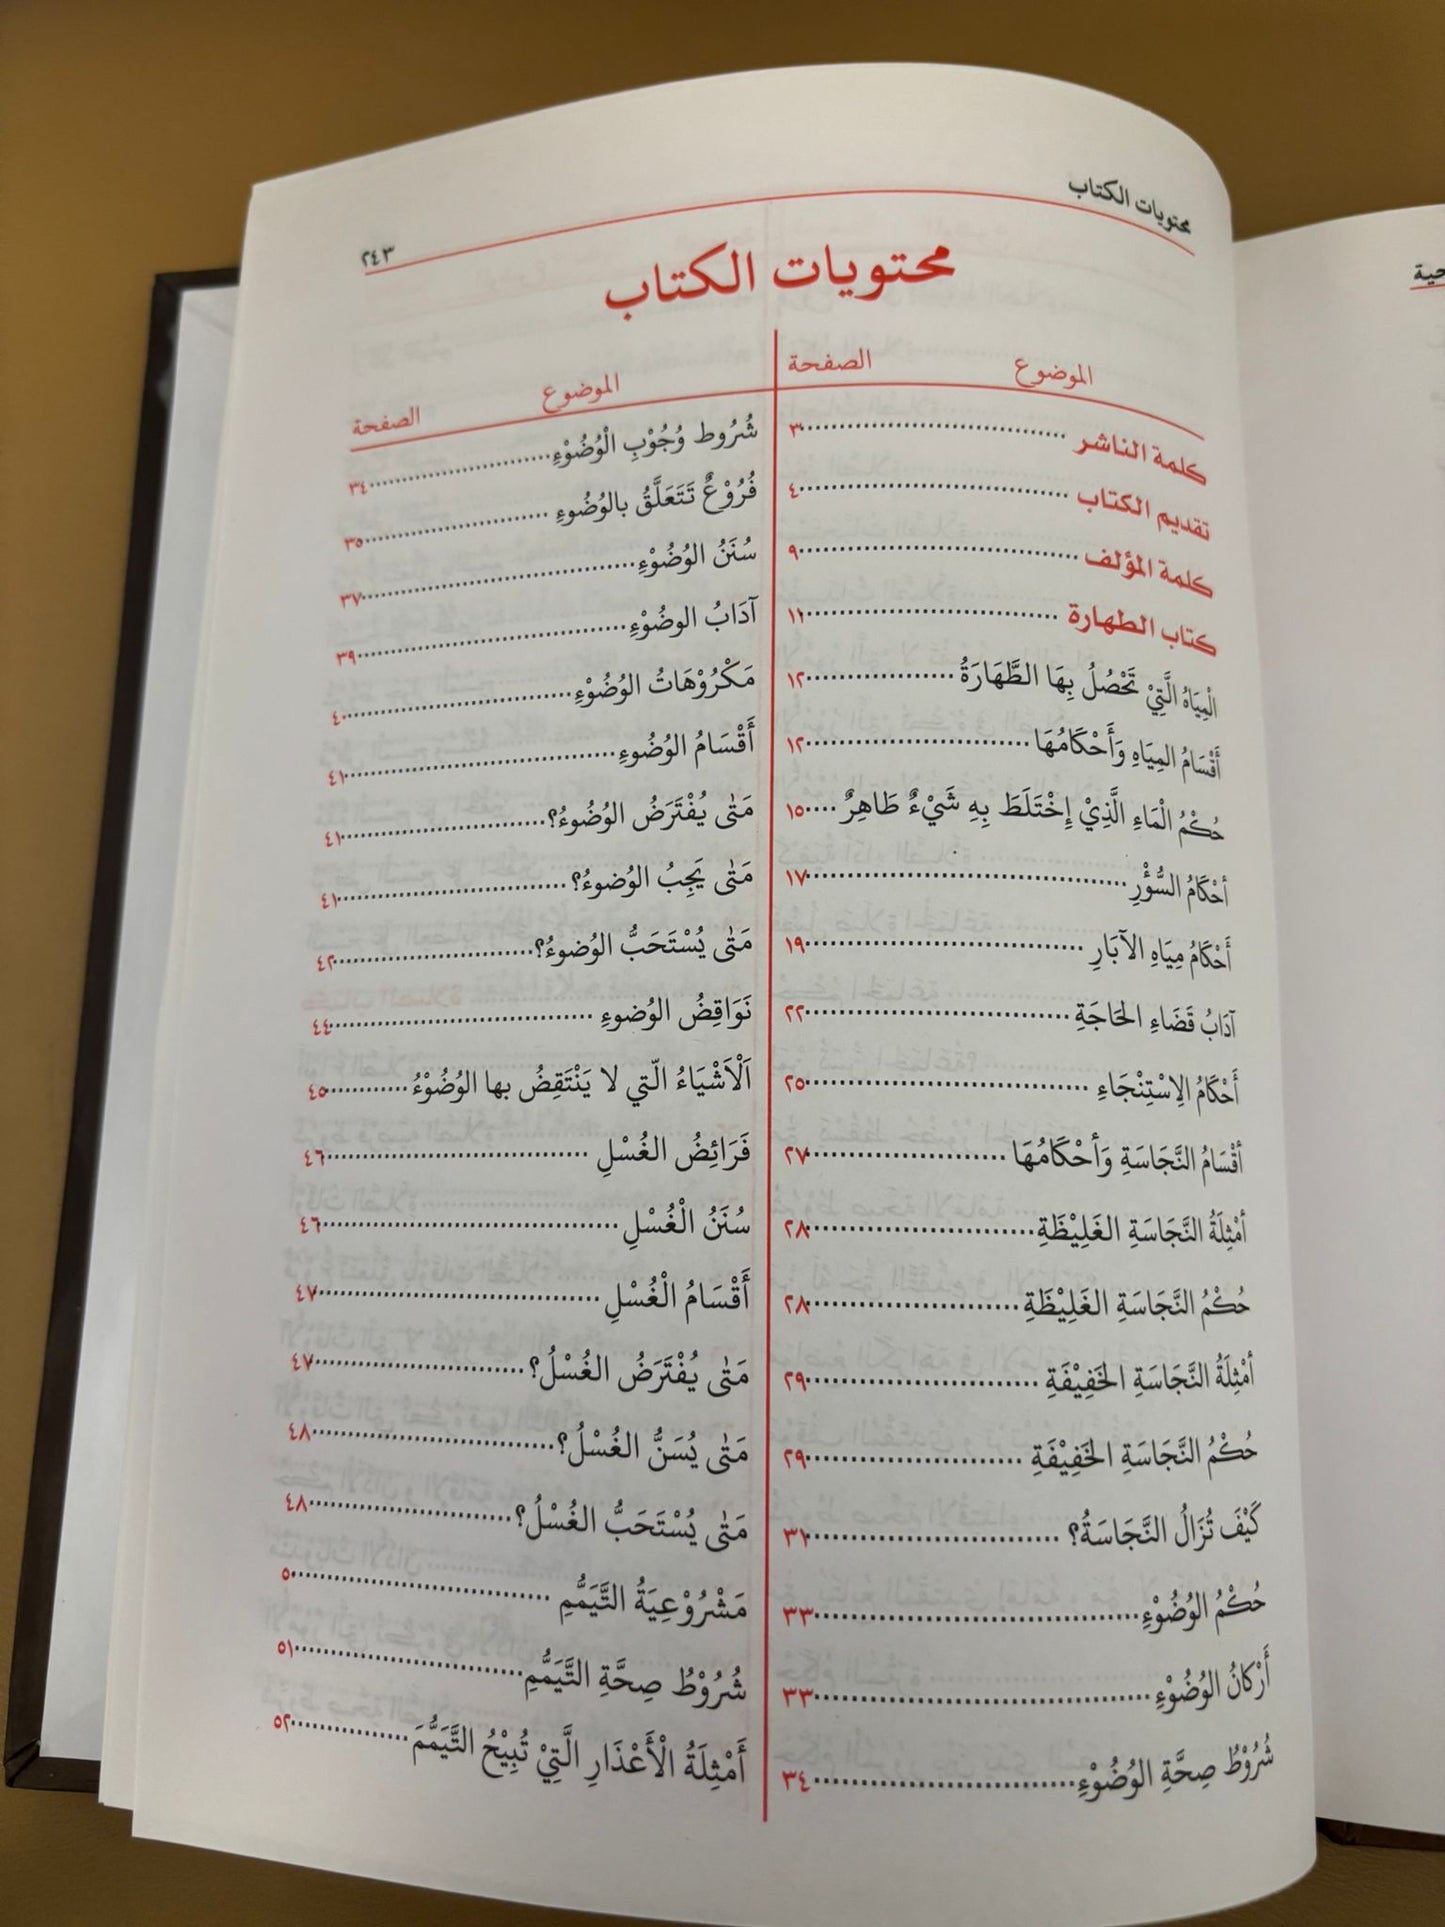 محتويات الكتاب
٢٤٣
محتويات الكتاب
الموضوع الصفحة
كلمة الناشر ٣
تقديم الكتاب ٤
كلمة المؤلف ٩
كتاب الطهارة ١١
الْمِيَاهُ الَّتِيْ تَحْصُلُ بِهَا الطَّهَارَةُ ١٢
أَقْسَامُ المِيَاهِ وَأَحْكَامُهَا ١٢
حُكْمُ الْمَاءِ الَّذِيْ إِخْتَلَطَ بِهِ شَيْءٌ طَاهِرٌ ١٥
أحْكَامُ السُّؤْرِ ١٧
أَحْكَامُ مِيَاهِ الآبَارِ ١٩
آدَابُ قَضَاءِ الحَاجَةِ ٢٢
أَحْكَامُ الِاسْتِنْجَاءِ ٢٥
أقْسَامُ النَّجَاسَةِ وَأحْكَامُهَا ٢٧
أمْثِلَةُ النَّجَاسَةِ الغَلِيْظَةِ ٢٨
حُكْمُ النَّجَاسَةِ الغَلِيْظَةِ ٢٨
أمْثِلَةُ النَّجَاسَةِ الخَفِيْفَةِ ٢٩
حُكْمُ النَّجَاسَةِ الخَفِيْفَةِ ٢٩
كَيْفَ تُزَالُ النَّجَاسَةُ؟ ٣١
حُكْمُ الوُضُوْءِ ٣٣
أَرْكَانُ الوُضُوْءِ ٣٣
شُرُوْطُ صِحَّةِ الوُضُوْءِ ٣٤
الموضوع الصفحة
شُرُوط وُجُوْبِ الْوُضُوْءِ ٣٤
فُرُوْعٌ تَتَعَلَّقُ بالوُضُوءِ ٣٥
سُنَنُ الوُضُوْءِ ٣٧
آدَابُ الوضُوْءِ ٣٩
مَكْرُوْهَاتُ الوُضُوْءِ ٤٠
أَقْسَامُ الوُضُوءِ ٤١
مَتٰى يُفْتَرَضُ الوُضُوءُ؟ ٤١
مَتٰى يَجِبُ الوُضوءُ؟ ٤١
مَتٰى يُسْتَحَبُّ الوُضوءُ؟ ٤٢
نَوَاقِضُ الوُضوءِ ٤٤
اَلْاَشْيَاءُ الّتي لا يَنْتَقِضُ بها الوُضُوْءُ ٤٥
فَرَائِضُ الغُسْلِ ٤٦
سُنَنُ الْغُسْلِ ٤٦
أَقْسَامُ الْغُسْلِ ٤٧
مَتٰى يُفْتَرَضُ الغُسْلُ؟ ٤٧
مَتٰى يُسَنُّ الغُسْلُ؟ ٤٨
مَتٰى يُسْتَحَبُّ الغُسْلُ؟ ٤٨
مَشْرُوْعِيَةُ التَّيَمُّمِ ٥٠
شُرُوْطُ صِحَّةِ التَّيَمُّمِ ٥١
أَمْثِلَةُ الْأَعْذَارِ الَّتِيْ تُبِيْحُ التَّيَمُّمَ ٥٢